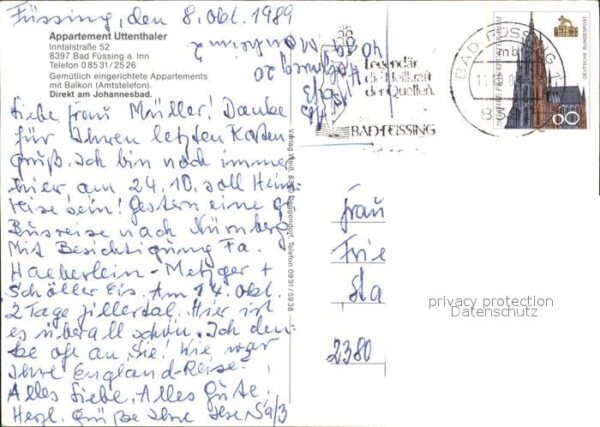 Füssing, den 8. Okt. 1989
Appartement Uttenthaler
Inntalstraße 52
8397 Bad Füssing a. Inn
Telefon 0 85 31/25 26
Gemütlich eingerichtete Appartements
mit Balkon (Amtstelefon).
Direkt am Johannesbad.
Liebe Frau Müller! Danke
für Ihren letzten Karten
gruß. Ich bin noch immer
hier, am 24.10. soll Heim
reise sein! Gestern eine
Busreise nach Nürnberg
mit Besichtigung Fa.
Haeberlein-Metzger +
Schöller Eis. Am 14. Okt.
2 Tage Zillertal. Hier ist
es überall schön. Ich den-
ke oft an Sie! Wie war
Ihre England-Reise?
Alles Liebe, Alles Gute!
Herzl. Grüße Ihre
4019 Monheim 2
20
Legendär
die Heilkraft
der Quellen.
BAD FÜSSING
BAD FÜSSING 1
mb
DEUTSCHE BUNDESPOST
60
Frau
Frie
Sta
2380
privacy protection
Datenschutz